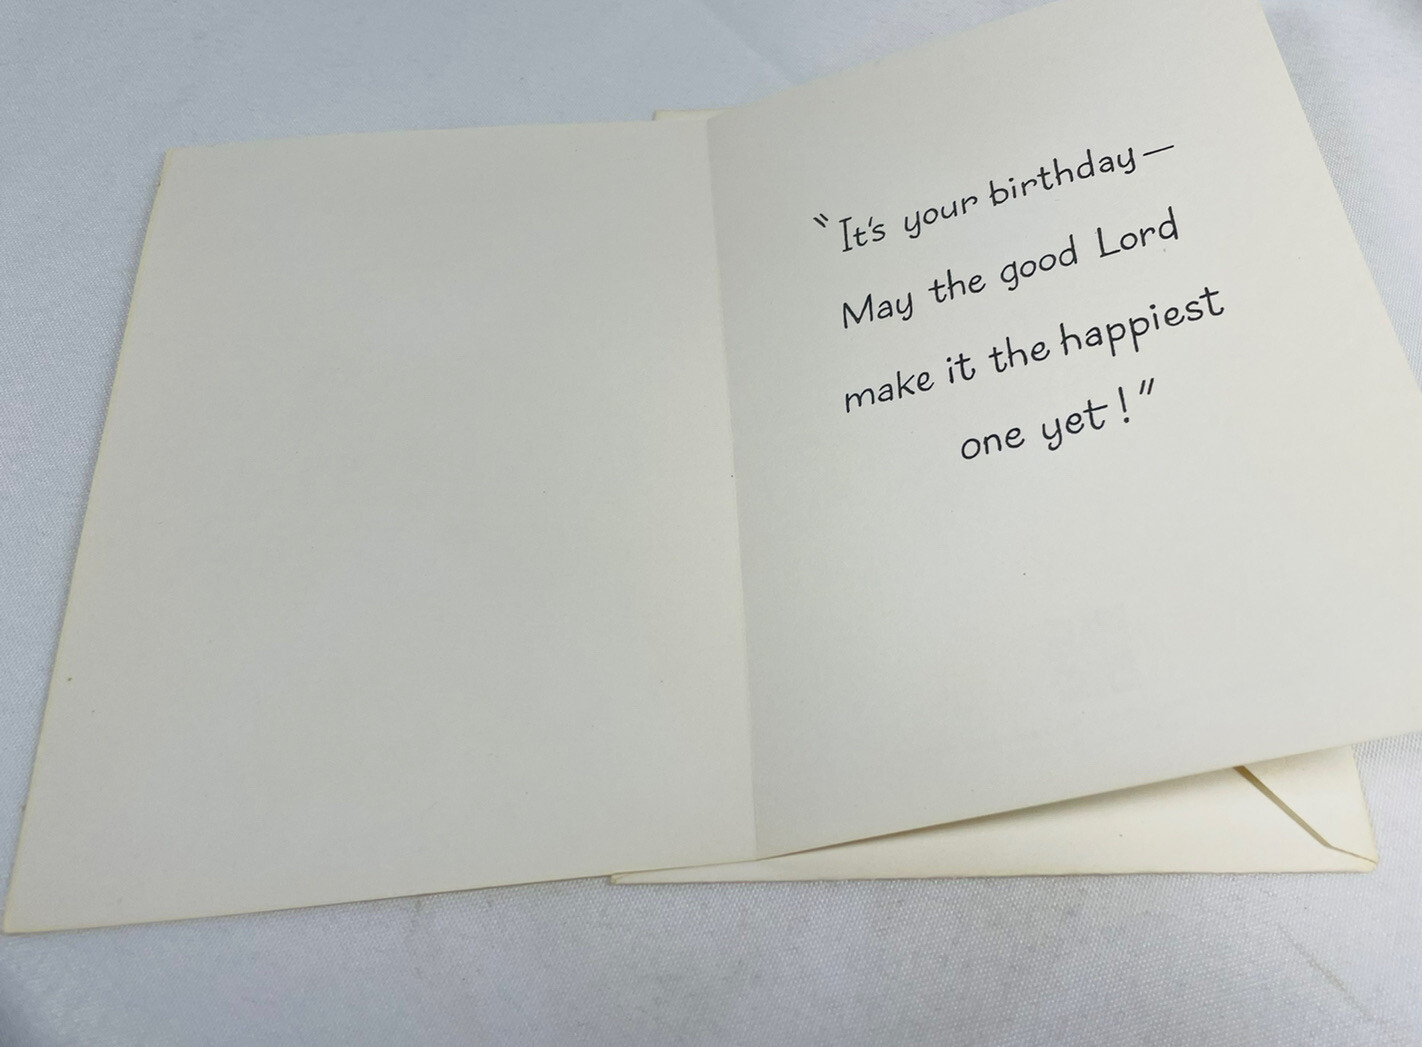 "It's your birthday—
May the good Lord
make it the happiest
one yet!"